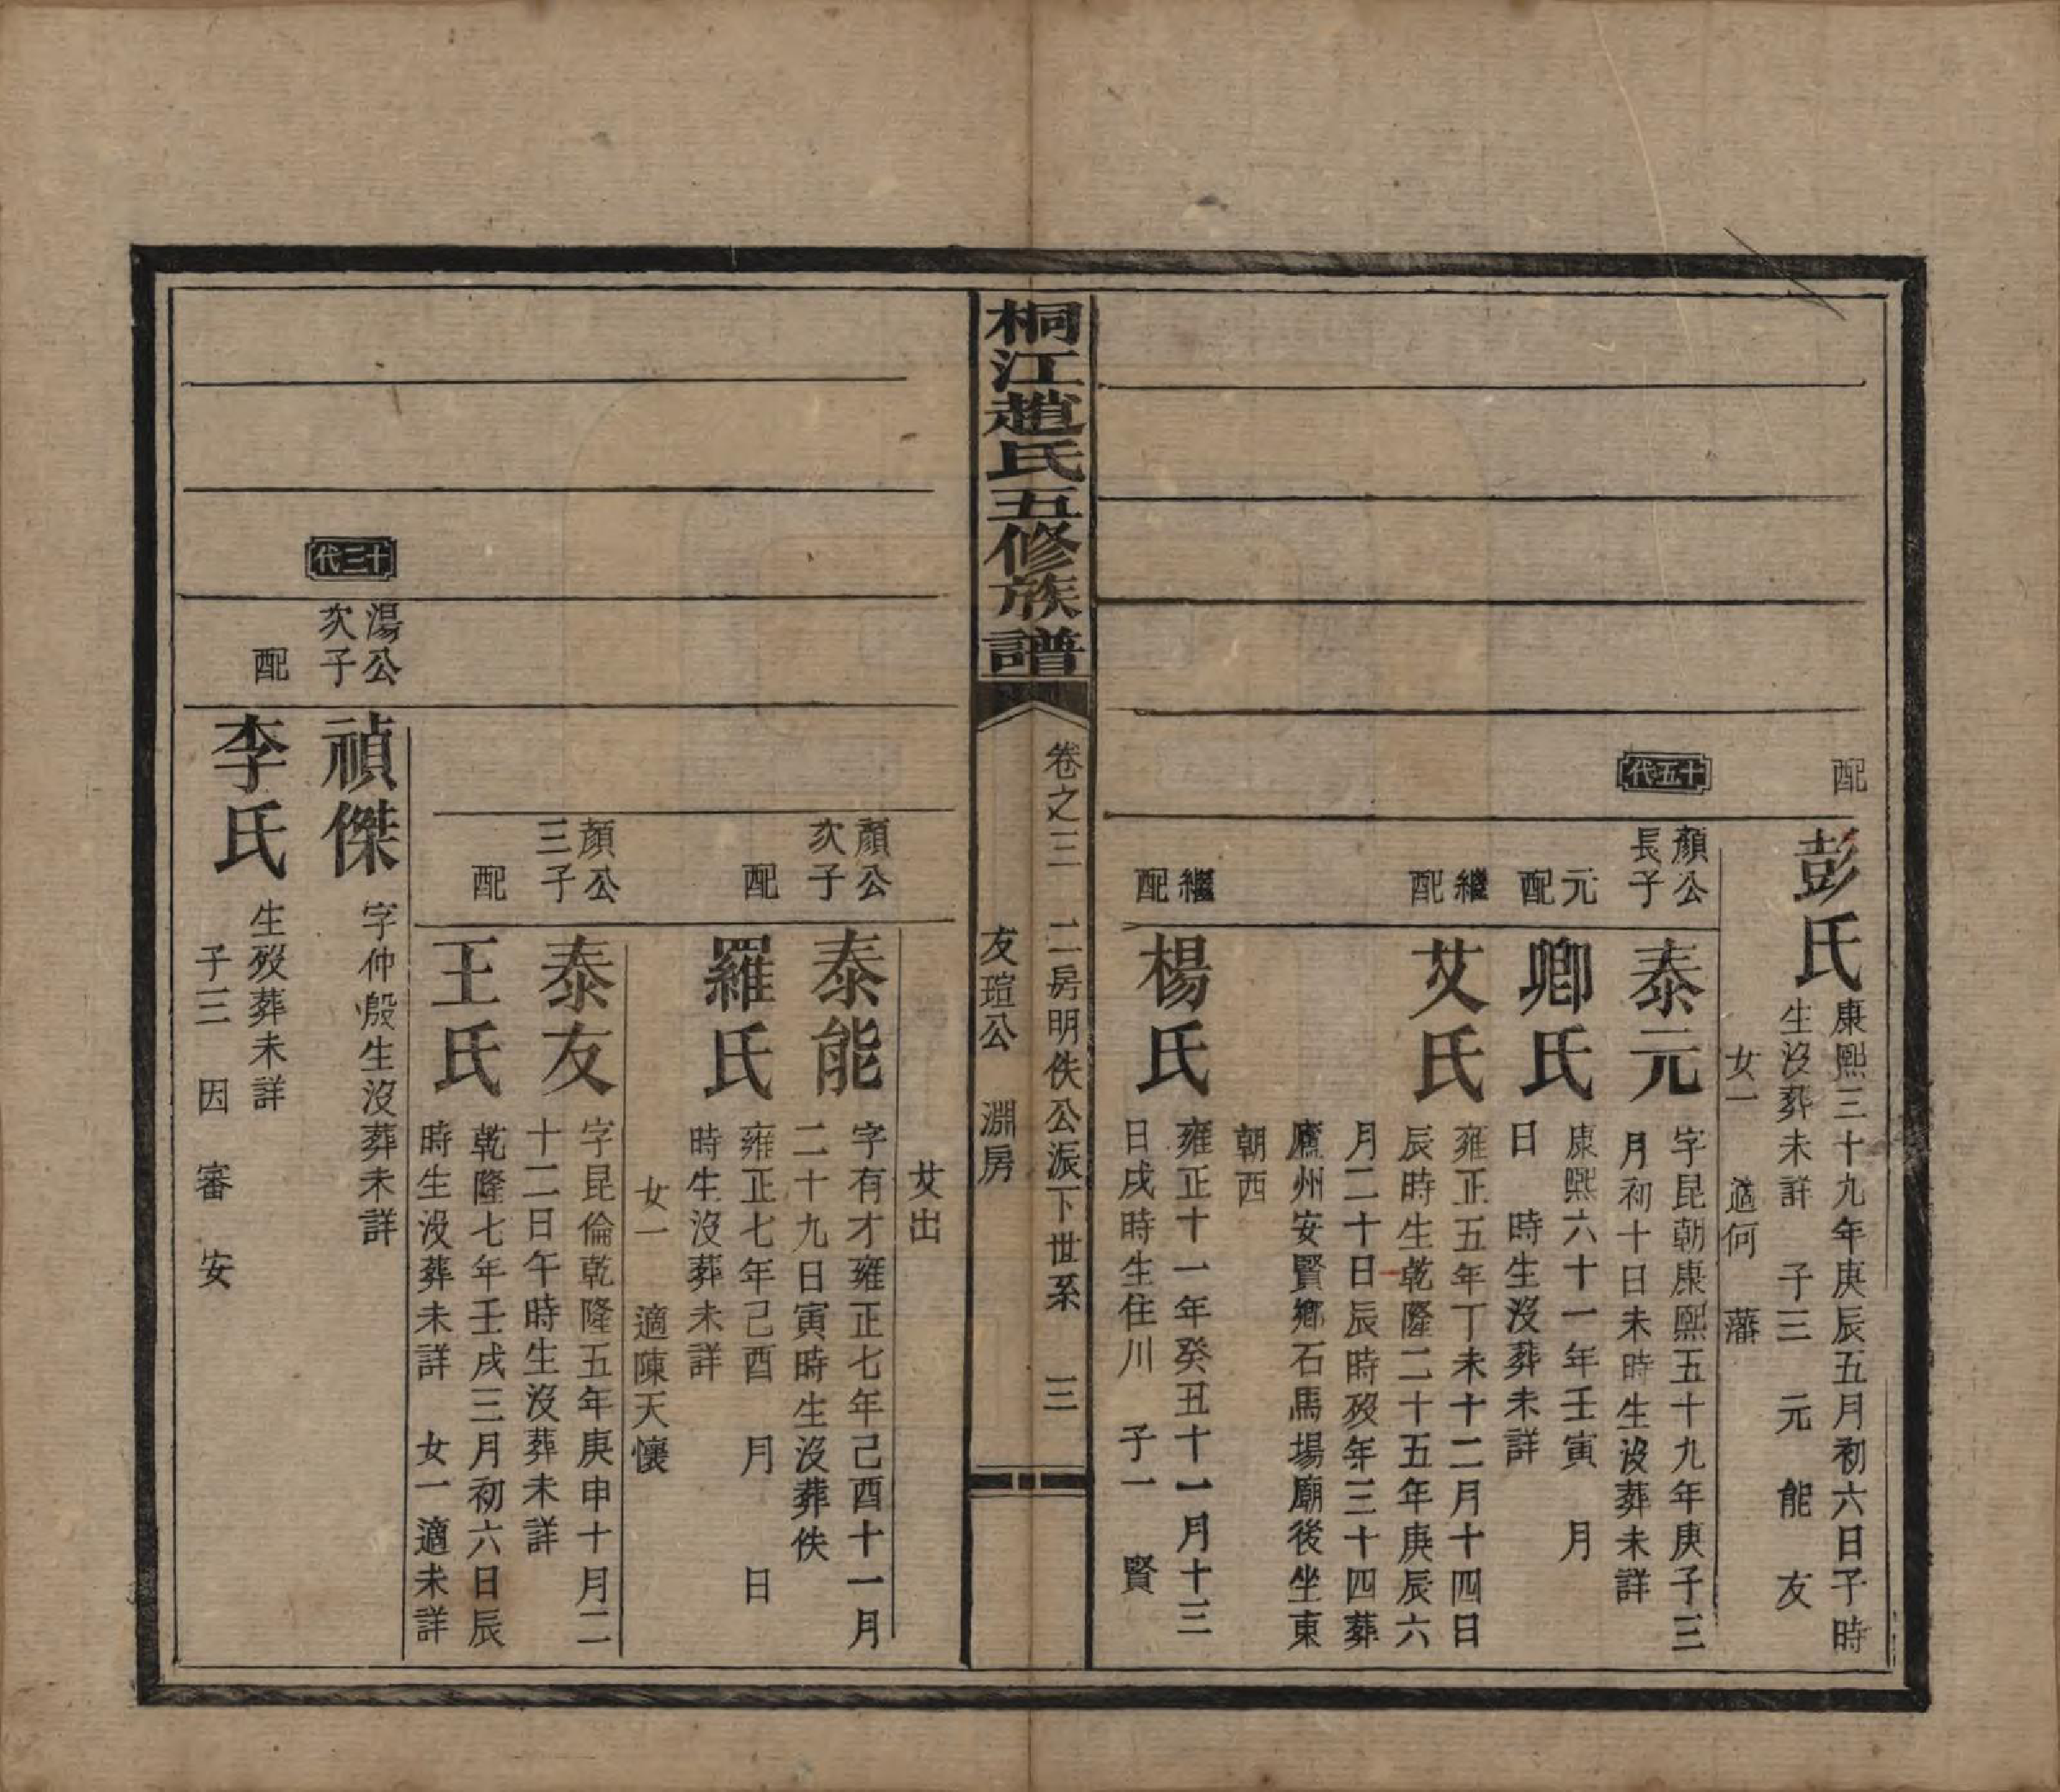 配
彭氏
康熙三十九年庚辰五月初六日子時
生沒葬未詳　子三　元　能　友
女一　適何　藩
十五代
顏公
長子
泰元
字昆朝康熙五十九年庚子三
月初十日未時生沒葬未詳
元
配
卿氏
康熙六十一年壬寅　月
日　時生沒葬未詳
繼
配
艾氏
雍正五年丁未十二月十四日
辰時生乾隆二十五年庚辰六
月二十日辰時歿年三十四葬
鷹州安賢鄉石馬場廟後坐東
朝西
繼
配
楊氏
雍正十一年癸丑十一月十三
日戌時生住川　子一　賢
桐江趙氏五修族譜
卷之三　二房明佚公派下世系　三
友瑄公　淵房
艾出
顏公
次子
泰能
字有才雍正七年己酉十一月
二十九日寅時生沒葬佚
配
羅氏
雍正七年己酉　月　日
時生沒葬未詳
女一　適陳天懷
顏公
三子
泰友
字昆倫乾隆五年庚申十月二
十二日午時生沒葬未詳
配
王氏
乾隆七年壬戌三月初六日辰
時生沒葬未詳　女一適未詳
十三代
湯公
次子
禎傑
字仲殷生沒葬未詳
配
李氏
生歿葬未詳
子三　因　審　安